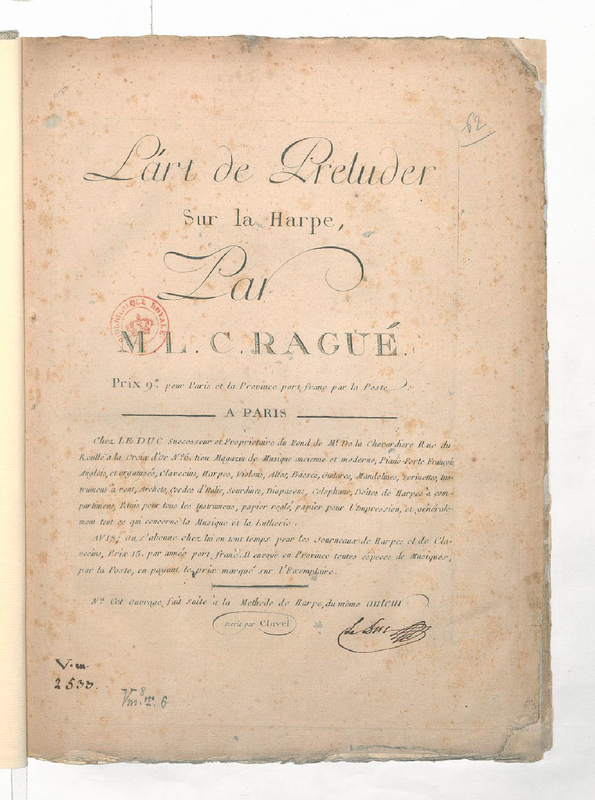 62
L'art de Preluder
Sur la Harpe,
Par
BIBLIOTHEQUE ROYALE
M. L. C. RAGUÉ.
Prix 9.ᵗᵗ pour Paris et la Province port franc par la Poste
A PARIS
Chez LE DUC Successeur et Proprietaire du Fond de Mr. De la Chevardiere Rue du
Roulle à la Croix d'or No. 6. tien Magazin de Musique ancienne et moderne, Piano-Forte François
Anglois, et organisés, Clavecins, Harpes, Violons, Altos, Basses, Guitares, Mandolines, Serinettes, Ins-
trumens à vent, Archets, Cordes d'Italie, Sourdines, Diapasons, Colophane, Boîtes de Harpes à com-
partimens, Etuis pour tous les Instrumens, papier reglé, papier pour l'Impression, et générale-
ment tout ce qui concerne la Musique et la Lutherie.
AVIS, On s'abonne chez lui en tout temps pour les Journeaux de Harpes et de Cla-
vecins, Prix 15. par année port franc. Il envoye en Province toutes especes de Musiques,
par la Poste, en payant le prix marqué sur l'Exemplaire.
Na. Cet Ouvrage fait suite à la Methode de Harpe, du même auteur
écris par Clavel
Le Duc
V.m
2533.
Vm.8 r. 6